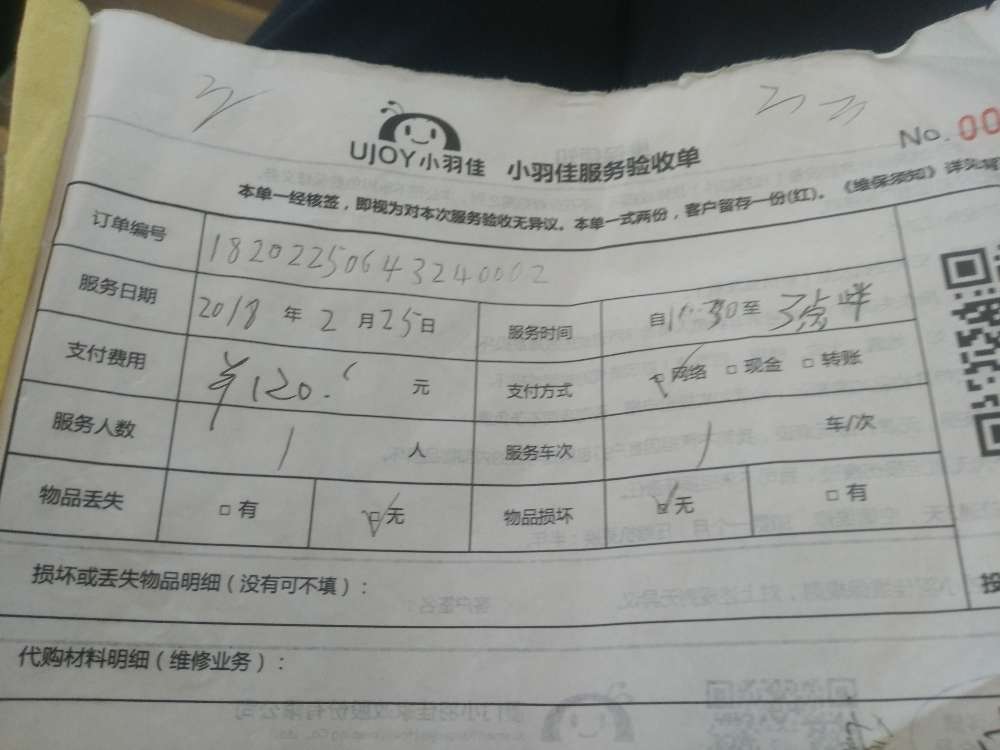 No.00
UJOY小羽佳 小羽佳服务验收单
本单一经核签，即视为对本次服务验收无异议。本单一式两份，客户留存一份(红)。《维保须知》详见背
订单编号 18202250643240002
服务日期 2018年2月25日 服务时间 自 至3点半
支付费用 ￥120. 元 支付方式 网络 □现金 □转账
服务人数 1 人 服务车次 1 车/次
物品丢失 □有 无 物品损坏 无 □有
损坏或丢失物品明细（没有可不填）：
代购材料明细（维修业务）：